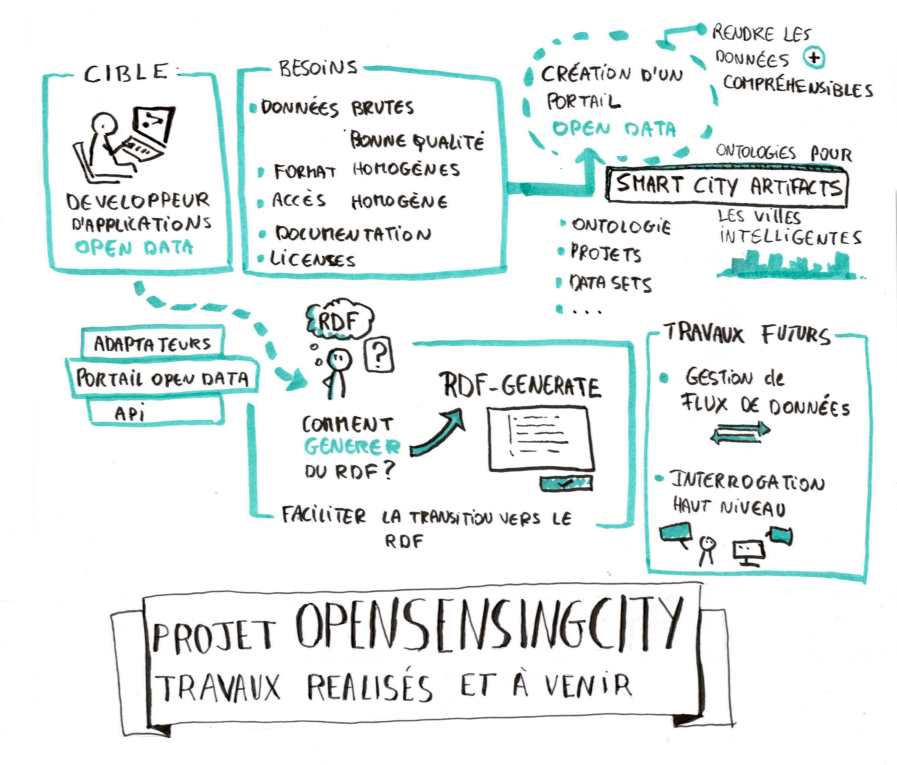 CIBLE:
DEVELOPPEUR
D'APPLICATIONS
OPEN DATA
BESOINS
• DONNÉES BRUTES
BONNE QUALITÉ
• FORMAT HOMOGÈNES
• ACCÈS HOMOGÈNE
• DOCUMENTATION
• LICENSES
CRÉATION D'UN
PORTAIL
OPEN DATA
RENDRE LES
DONNÉES +
COMPRÉHENSIBLES
ONTOLOGIES POUR
SMART CITY ARTIFACTS
LES VILLES
INTELLIGENTES
• ONTOLOGIE
• PROJETS
• DATA SETS
• ...
ADAPTATEURS
PORTAIL OPEN DATA
API
RDF
?
COMMENT
GENERER
DU RDF?
RDF-GENERATE
FACILITER LA TRANSITION VERS LE
RDF
TRAVAUX FUTURS
• GESTION de
FLUX DE DONNÉES
• INTERROGATION
HAUT NIVEAU
PROJET OPENSENSINGCITY
TRAVAUX REALISÉS ET À VENIR